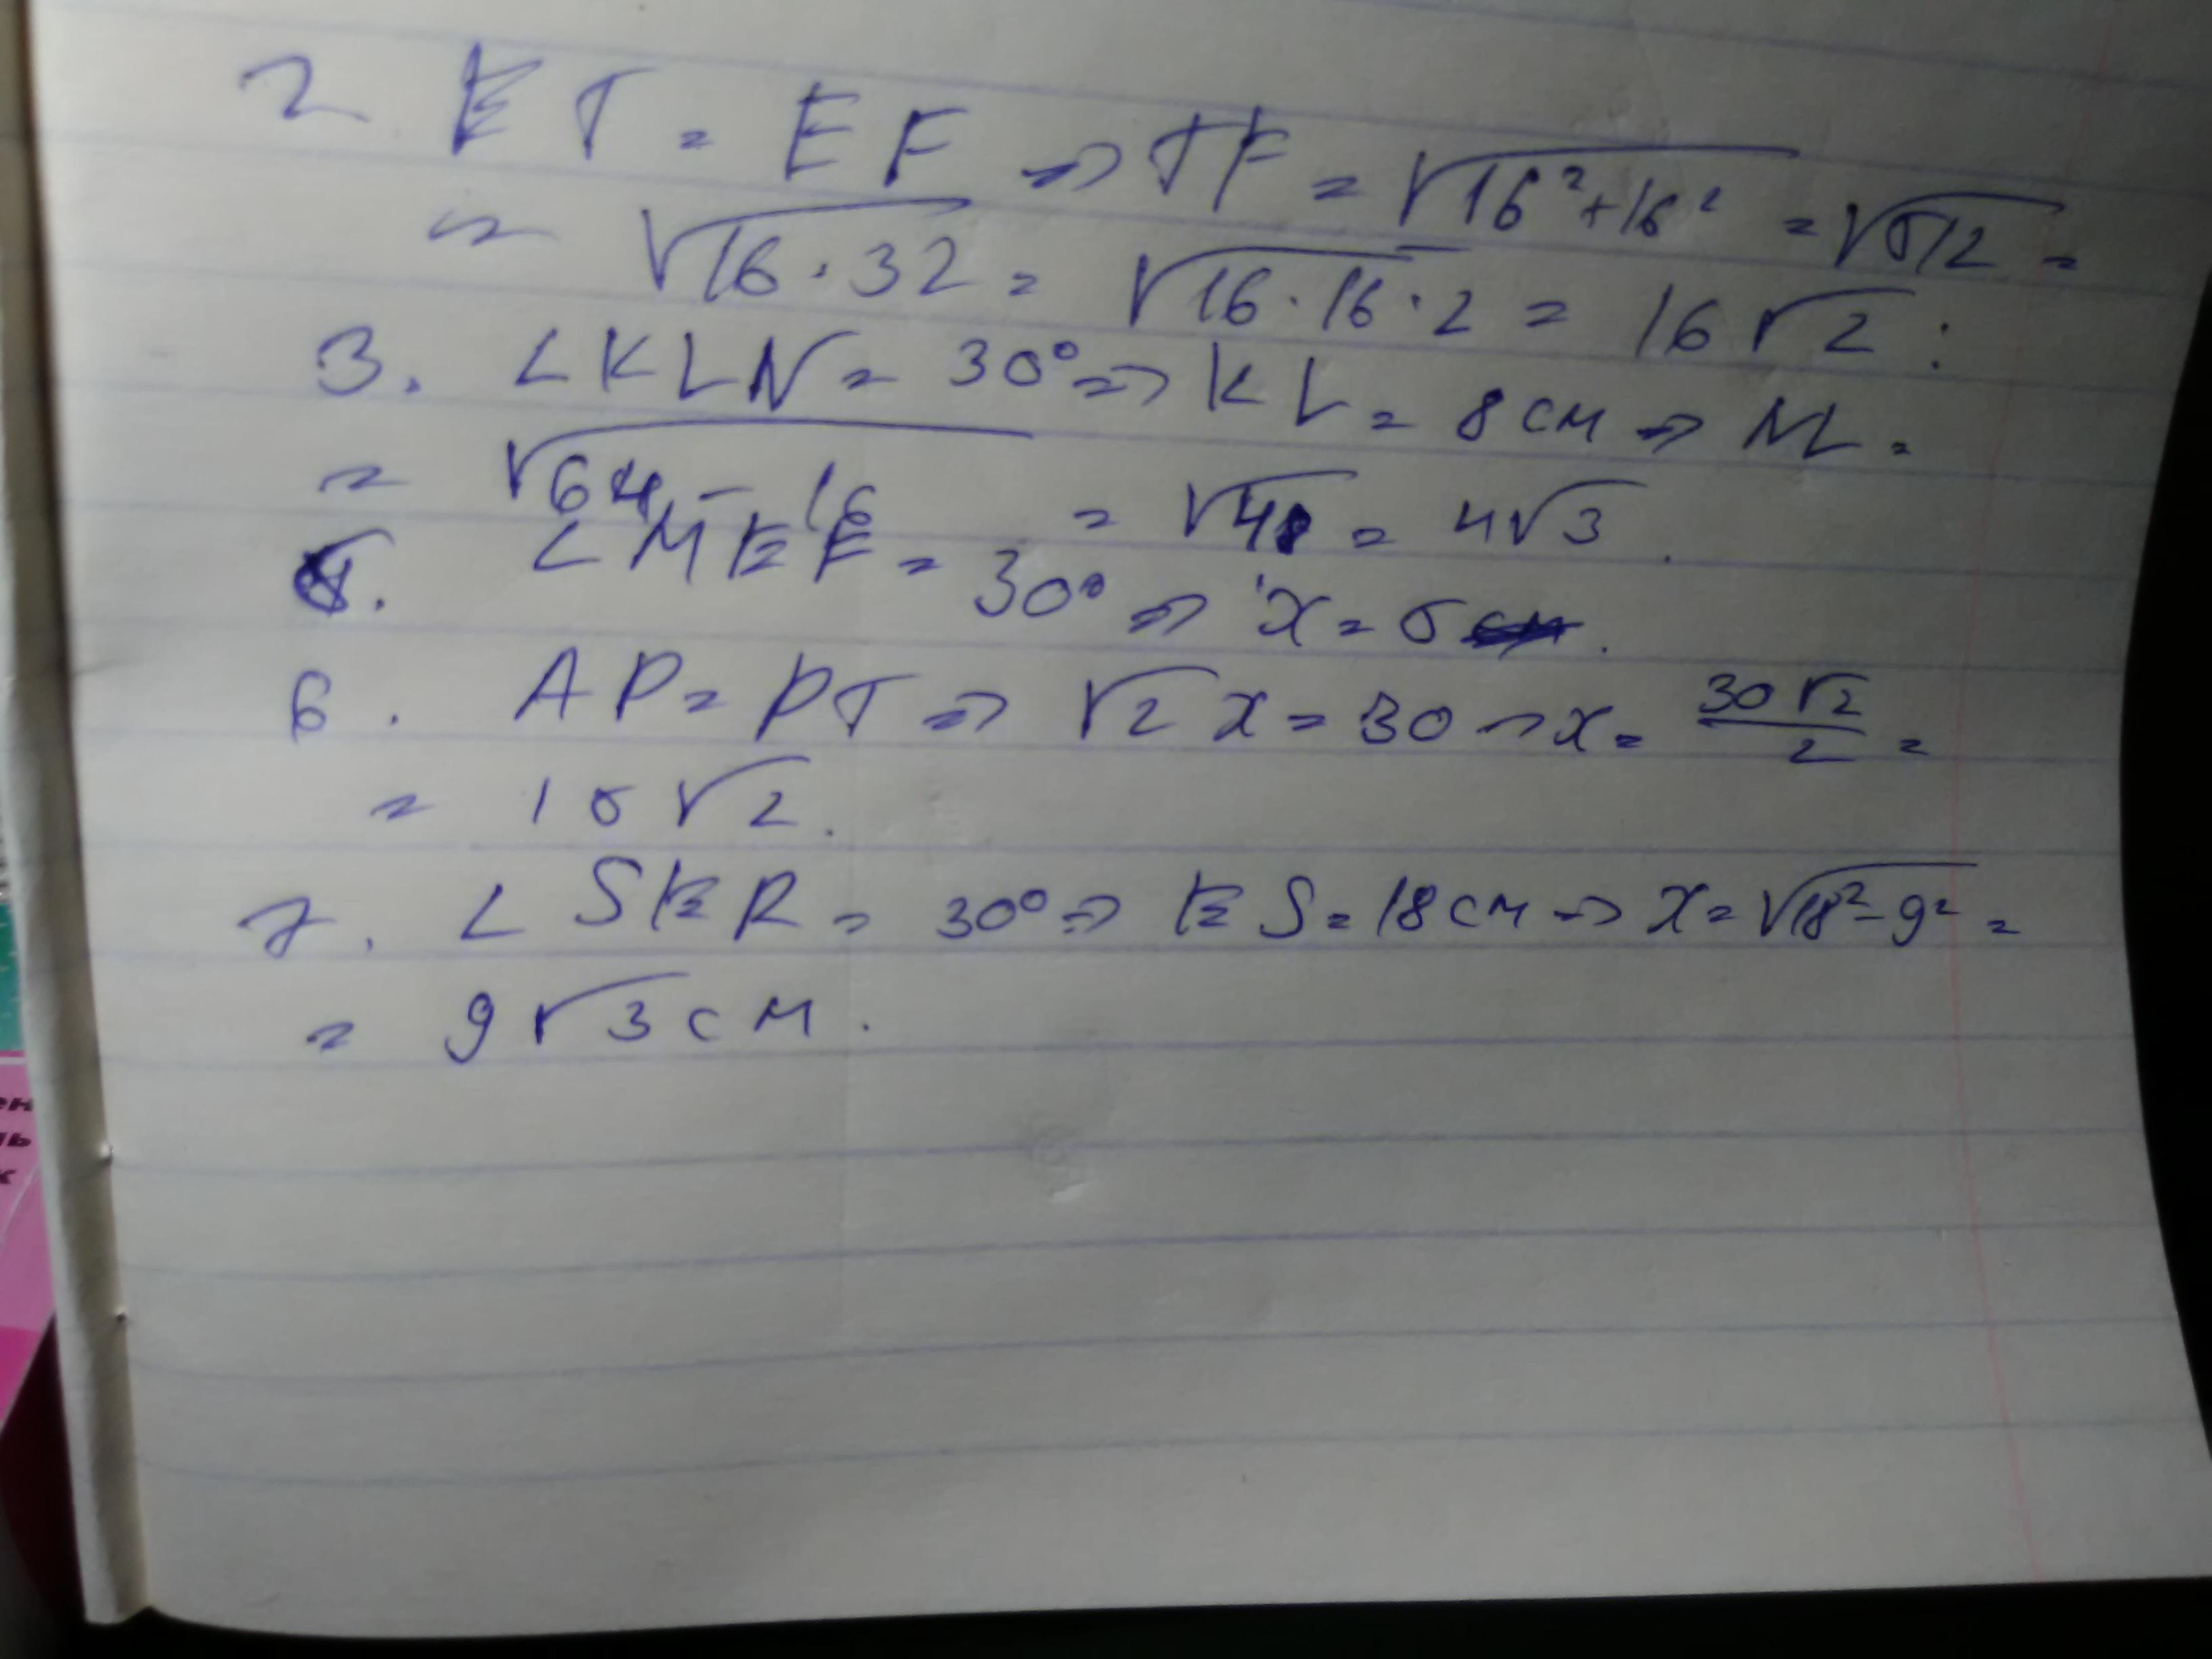 2 ET = EF => TF = √16²+16² = √512 =
= √16·32 = √16·16·2 = 16√2:
3. ∠KLN = 30° => KL = 8 см => NL =
= √64-16 = √48 = 4√3.
5. ∠MEF = 30° => x = 5.
6. AP = PT => √2 x = 30 => x = 30√2/2 =
= 15√2.
7. ∠SER = 30° => ES = 18 см => x = √18²-9² =
= 9√3 см.